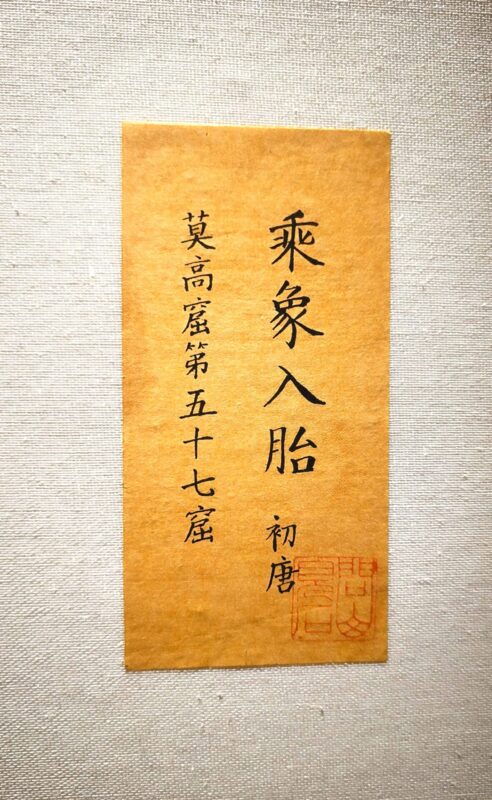 乘象入胎 初唐
莫高窟第五十七窟